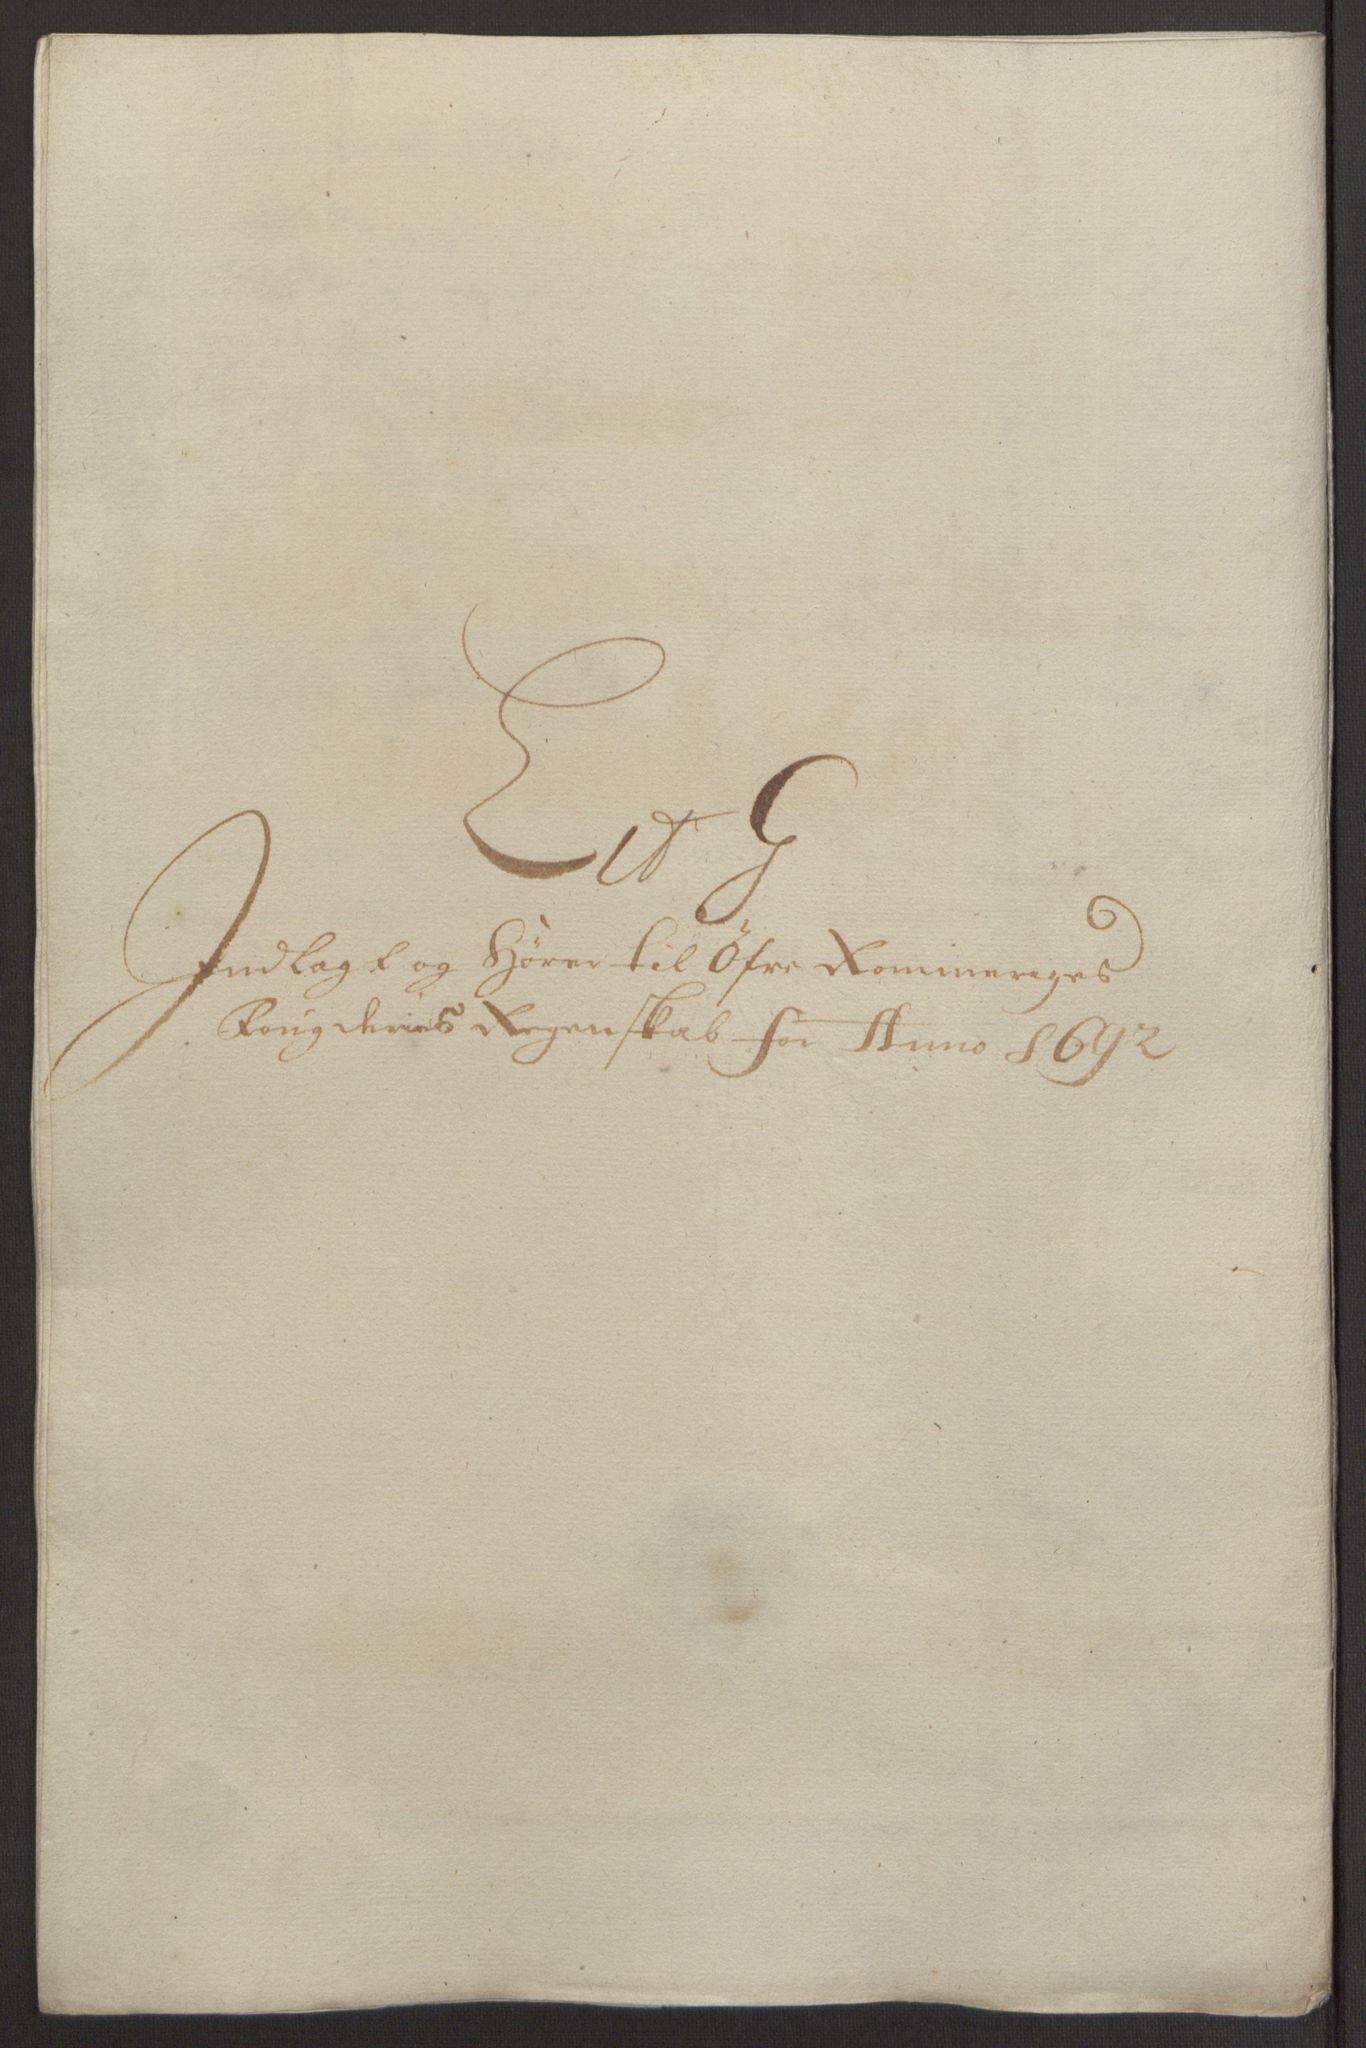 Lit G
Indlagt og Hörer til Öfre Romineriges
Fougderies Regenskab for Anno 1692